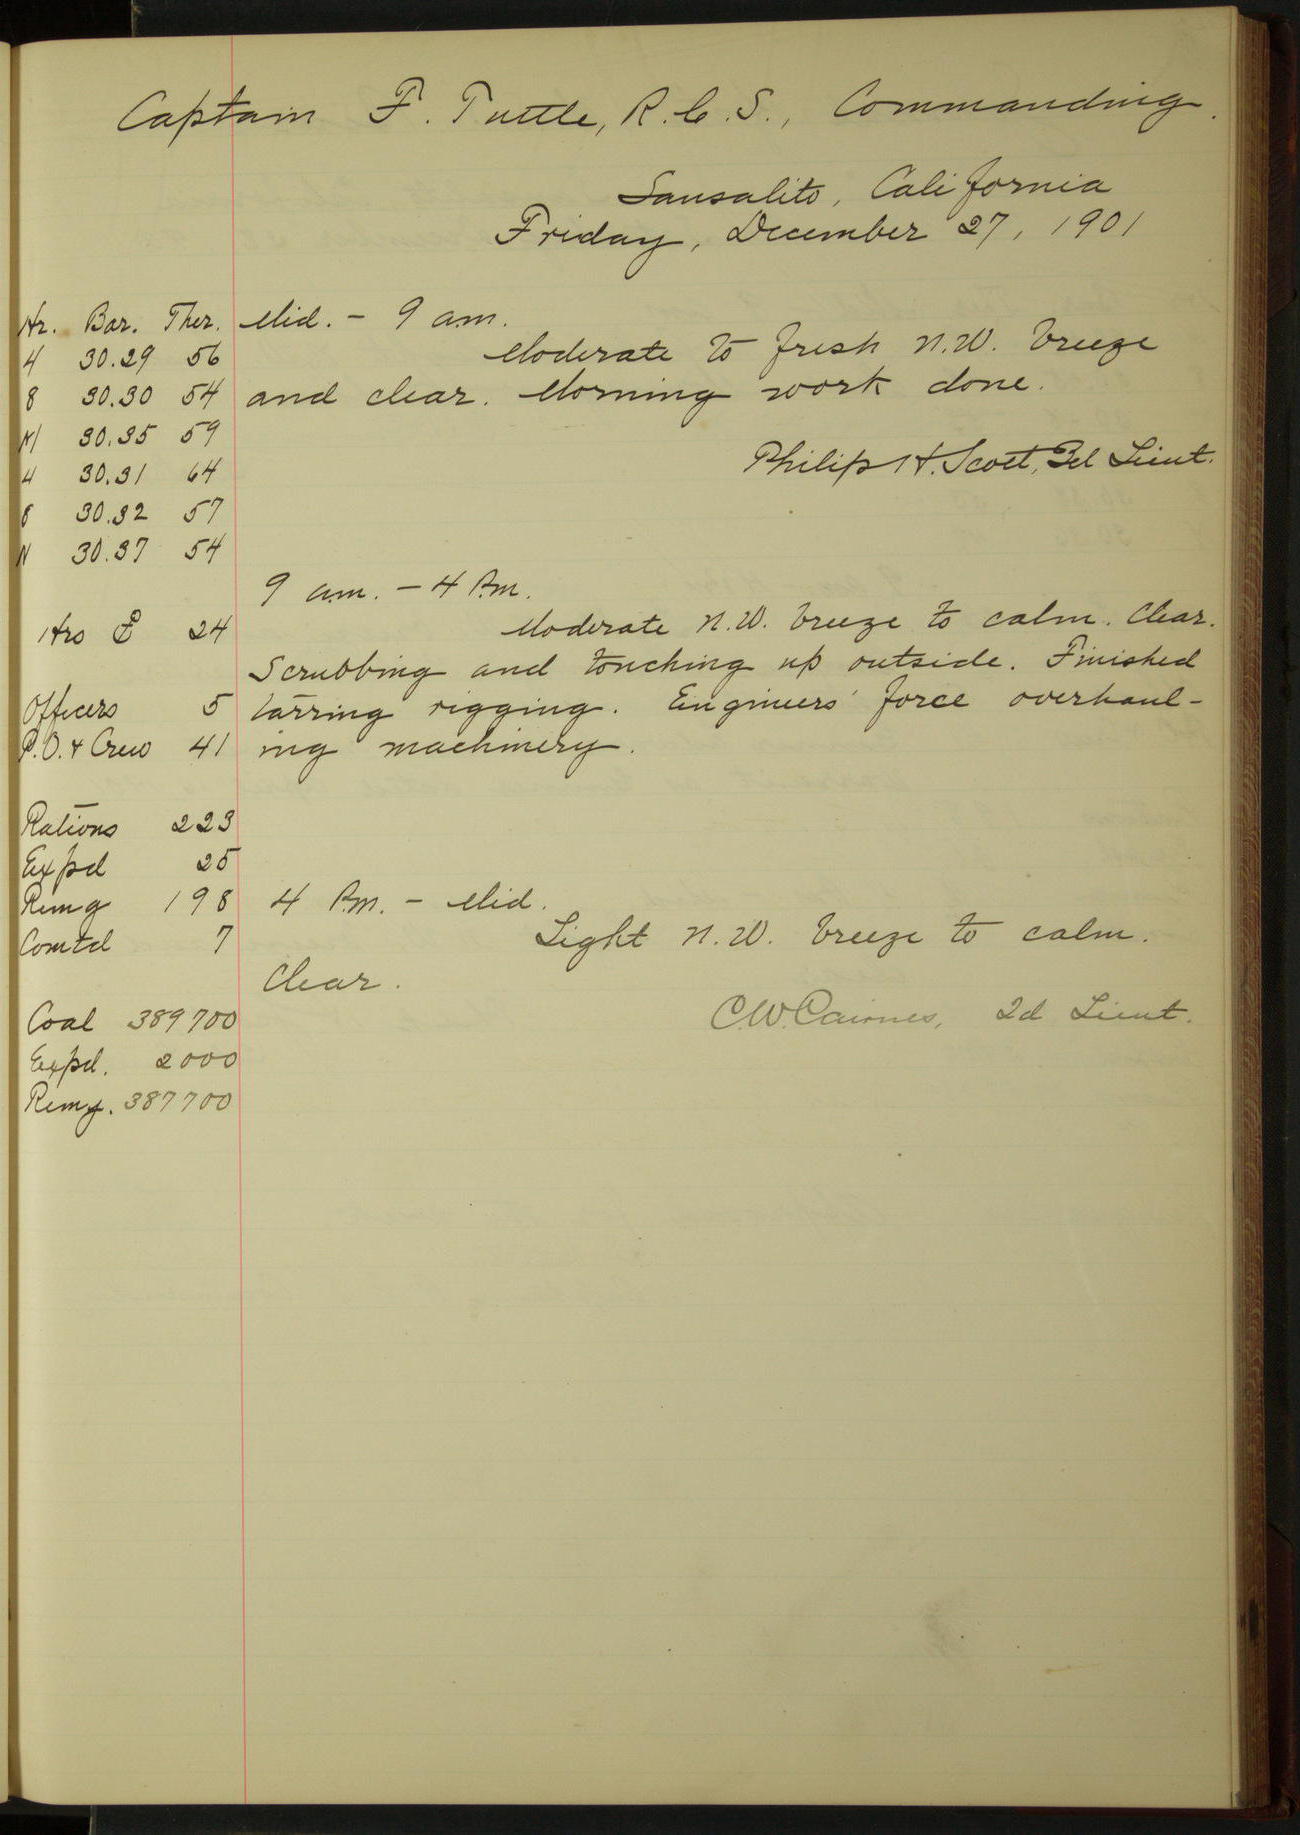 Captain F. Tuttle, R.C.S., Commanding.
Sausalito, California
Friday, December 27, 1901
Hr. Bar. Ther.
4 30.29 56
8 30.30 54
M 30.35 59
4 30.31 64
8 30.32 57
N 30.37 54
Hrs 24
Officers 5
P.O. & Crew 41
Rations 223
Expd 25
Remg 198
Comtd 7
Coal 389700
Expd. 2000
Remg. 387700
Mid. - 9 a.m.
Moderate to fresh N.W. breeze
and clear. Morning work done.
Philip H. Scott, 3d Lieut.
9 a.m. - 4 P.m.
Moderate N.W. breeze to calm. Clear.
Scrubbing and touching up outside. Finished
tarring rigging. Engineers' force overhaul-
ing machinery.
4 P.m. - Mid.
Light N.W. breeze to calm.
Clear.
C.W. Cairnes, 2d Lieut.